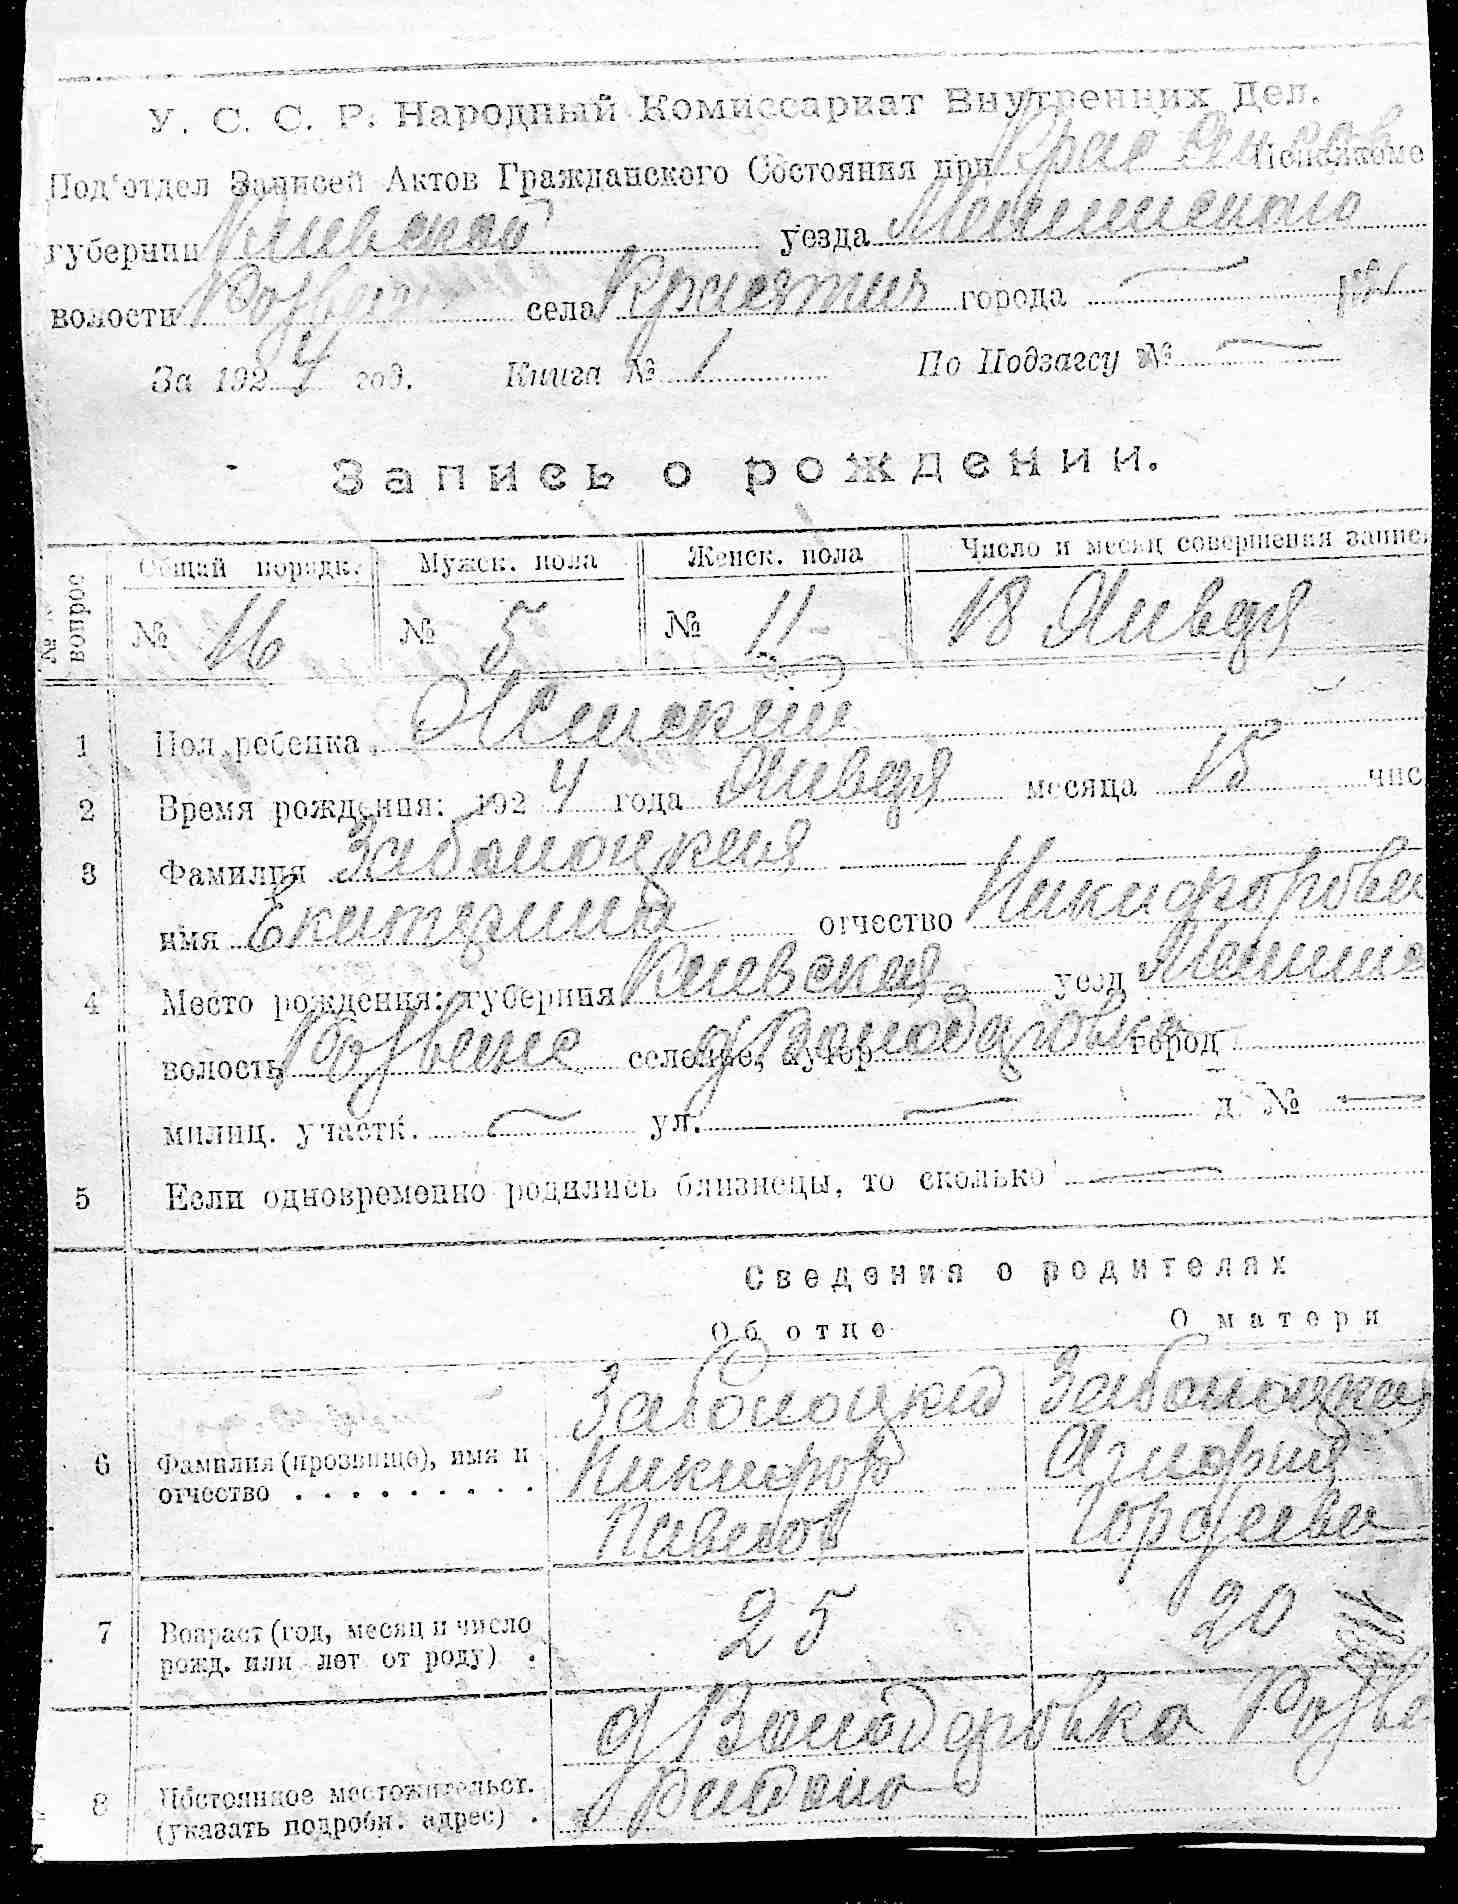 У. С. С. Р. Народный Комиссариат Внутренних Дел.
Под'отдел Записей Актов Гражданского Состояния при
губернии Киевской уезда
волости села Красятичи города
За 1924 год. Книга № 1 По Подзагсу № —
Запись о рождении.
№ № вопрос Общий порядк. Мужск. пола Женск. пола Число и месяц совершения записи
№ 16 № 5 № 11 18 Января
1 Пол ребенка Женский
2 Время рождения: 1924 года Января месяца 15 чис
3 Фамилия Заболоцкая
имя Екатерина отчество Никифорова
4 Место рождения: губерния Киевская уезд
волость селение, хутор город
милиц. участк. — ул. — д. № —
5 Если одновременно родились близнецы, то сколько —
Сведения о родителях
Об отце О матери
Заболоцкий Заболоцкая
6 Фамилия (прозвище), имя и отчество . . . . . . . . . Никифор
Павлов Гордеева
7 Возраст (год, месяц и число рожд. или лет от роду) . 25 20
8 Постоянное местожительст. (указать подробн. адрес) .